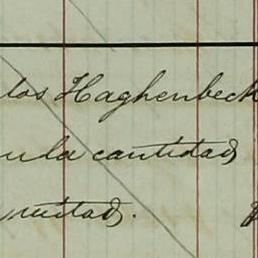 los Haghenbeck
la cantidad
mitad.